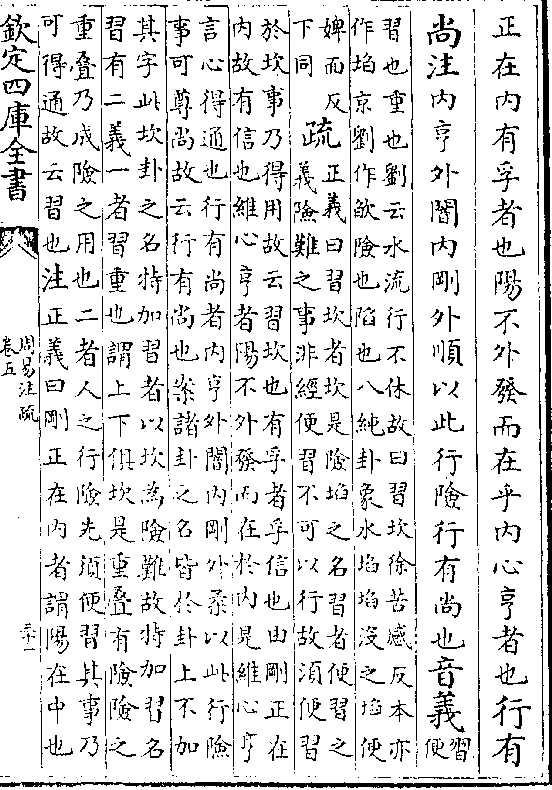 正在内有孚者也陽不外發而在乎内心亨者也行有
尚注内亨外闇内剛外順以此行險行有尚也音義習便
習也重也劉云水流行不休故曰習坎徐苦感反本亦
作埳京劉作欿險也陷也八純卦象水埳埳沒之埳便
婢而反
下同疏正義曰習坎者坎是險埳之名習者便習之
義險難之事非經便習不可以行故須便習
於坎事乃得用故云習坎也有孚者孚信也由剛正在
内故有信也維心亨者陽不外發而在於内是維心亨
言心得通也行有尚者内亨外闇内剛外柔以此行險
事可尊尚故云行有尚也案諸卦之名皆於卦上不加
其字此坎卦之名特加習者以坎為險難故特加習名
習有二義一者習重也謂上下俱坎是重叠有險險之
重叠乃成險之用也二者人之行險先須便習其事乃
可得通故云習也注正義曰剛正在内者謂陽在中也
欽定四庫全書
周易注疏
卷五